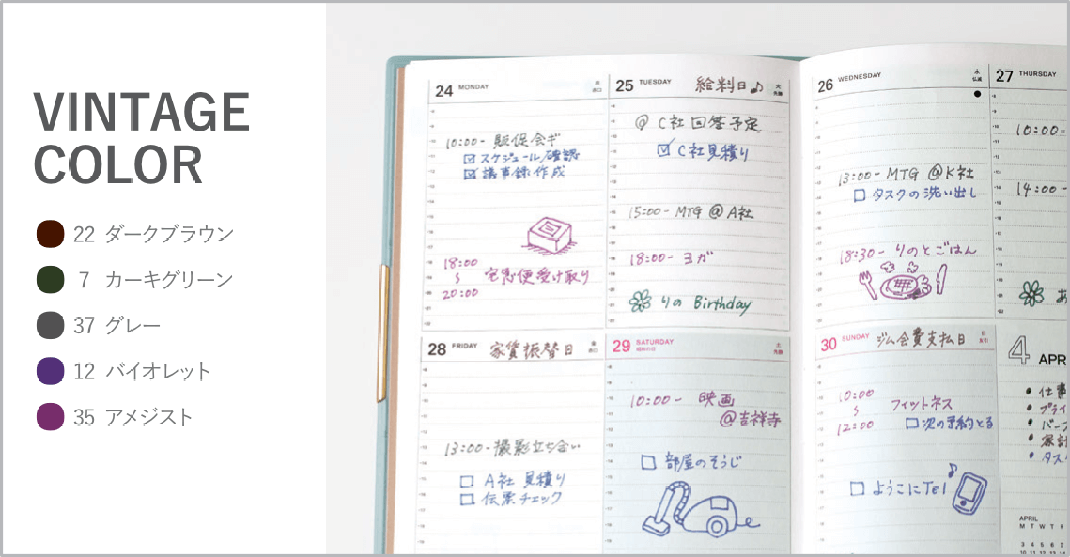 VINTAGE
COLOR
22 ダークブラウン
7 カーキグリーン
37 グレー
12 バイオレット
35 アメジスト
24 MONDAY
10:00- 販促会ギ
スケジュール確認
議事録作成
18:00
~
20:00
宅急便受け取り
25 TUESDAY 給料日♪
@ C社回答予定
C社見積り
15:00- MTG @A社
18:00- ヨガ
りの Birthday
26 WEDNESDAY
13:00- MTG @K社
タスクの洗い出し
18:30- りのとごはん
27 THURSDAY
10:00-
14:00-
あ
28 FRIDAY 家賃振替日
13:00- 撮影立ち合い
A社 見積り
伝票チェック
29 SATURDAY
10:00- 映画
@吉祥寺
部屋のそうじ
30 SUNDAY ジム会費支払日
10:00
~
12:00
フィットネス
次の予約とる
ようこにTEl
4 APR
仕事
プライ
家計
タス
APRIL
M T W T F